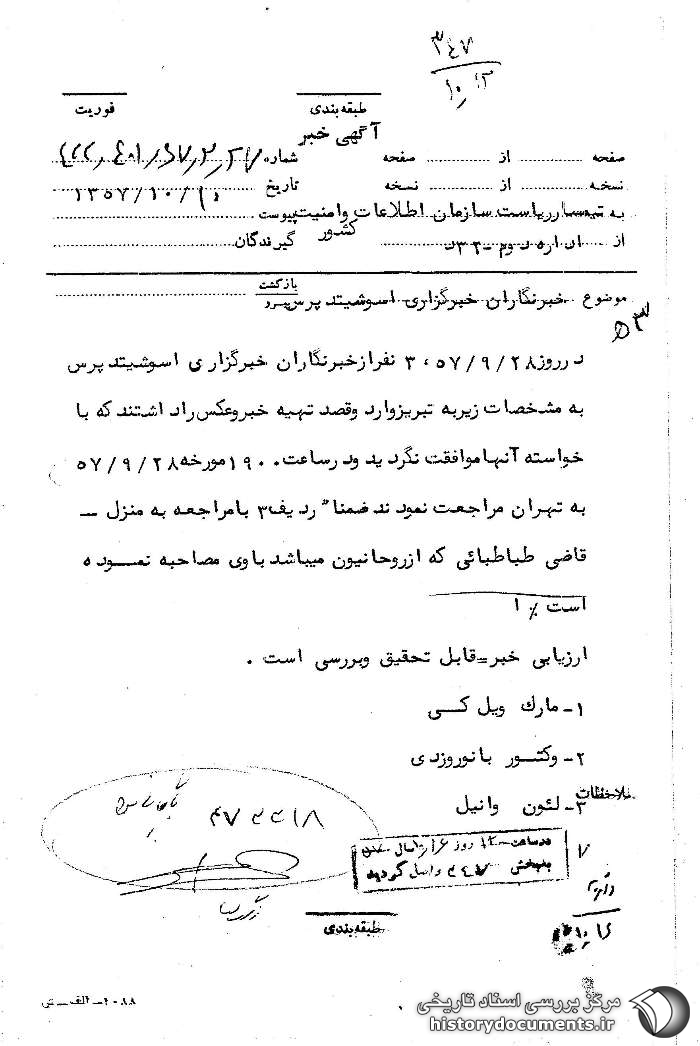 ۳۴۷
۱۰٫۱۲
طبقه بندی
فوریت
آگهی خبر
صفحه از صفحه شماره
نسخه از نسخه تاریخ ۱۳۵۷/۱۰/۱۰
به تیمسار ریاست سازمان اطلاعات وامنیت کشور پیوست
از اداره دوم - د۳۲ گیرندگان
موضوع خبرنگاران خبرگزاری اسوشیتدپرس بازگشت
در روز ۵۷/۹/۲۸، ۳ نفر از خبرنگاران خبرگزاری اسوشیتدپرس
به مشخصات زیر به تبریز وارد وقصد تهیه خبر وعکس را داشتند که با
خواسته آنها موافقت نگردید و در ساعت ۱۹۰۰ مورخه ۵۷/۹/۲۸
به تهران مراجعت نمودند ضمنا" ردیف ۳ با مراجعه به منزل –
قاضی طباطبائی که از روحانیون میباشد با وی مصاحبه نمـوده
است ٪ ۱
ارزیابی خبر= قابل تحقیق وبررسی است .
۱- مارك ویل کـی
۲- وکتـور بانوروزدی
ملاحظات
۳- لئون وانیل
در ساعت روز
به بخش ۳۴۷ واصل گردید
طبقه بندی
۲۰۸۸-۴ الف - ش
مرکز بررسی اسناد تاریخی
historydocuments.ir